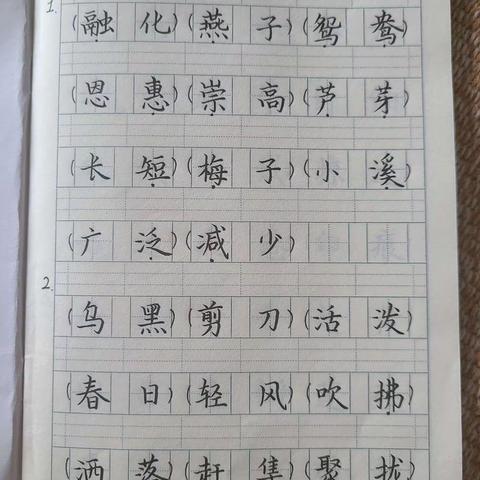 1.
(融化)(燕子)(鸳鸯)
(恩惠)(崇高)(芦芽)
(长短)(梅子)(小溪)
(广泛)(减少)
2.
(乌黑)(剪刀)(活泼)
(春日)(轻风)(吹拂)
(洒落)(赶集)(聚拢)